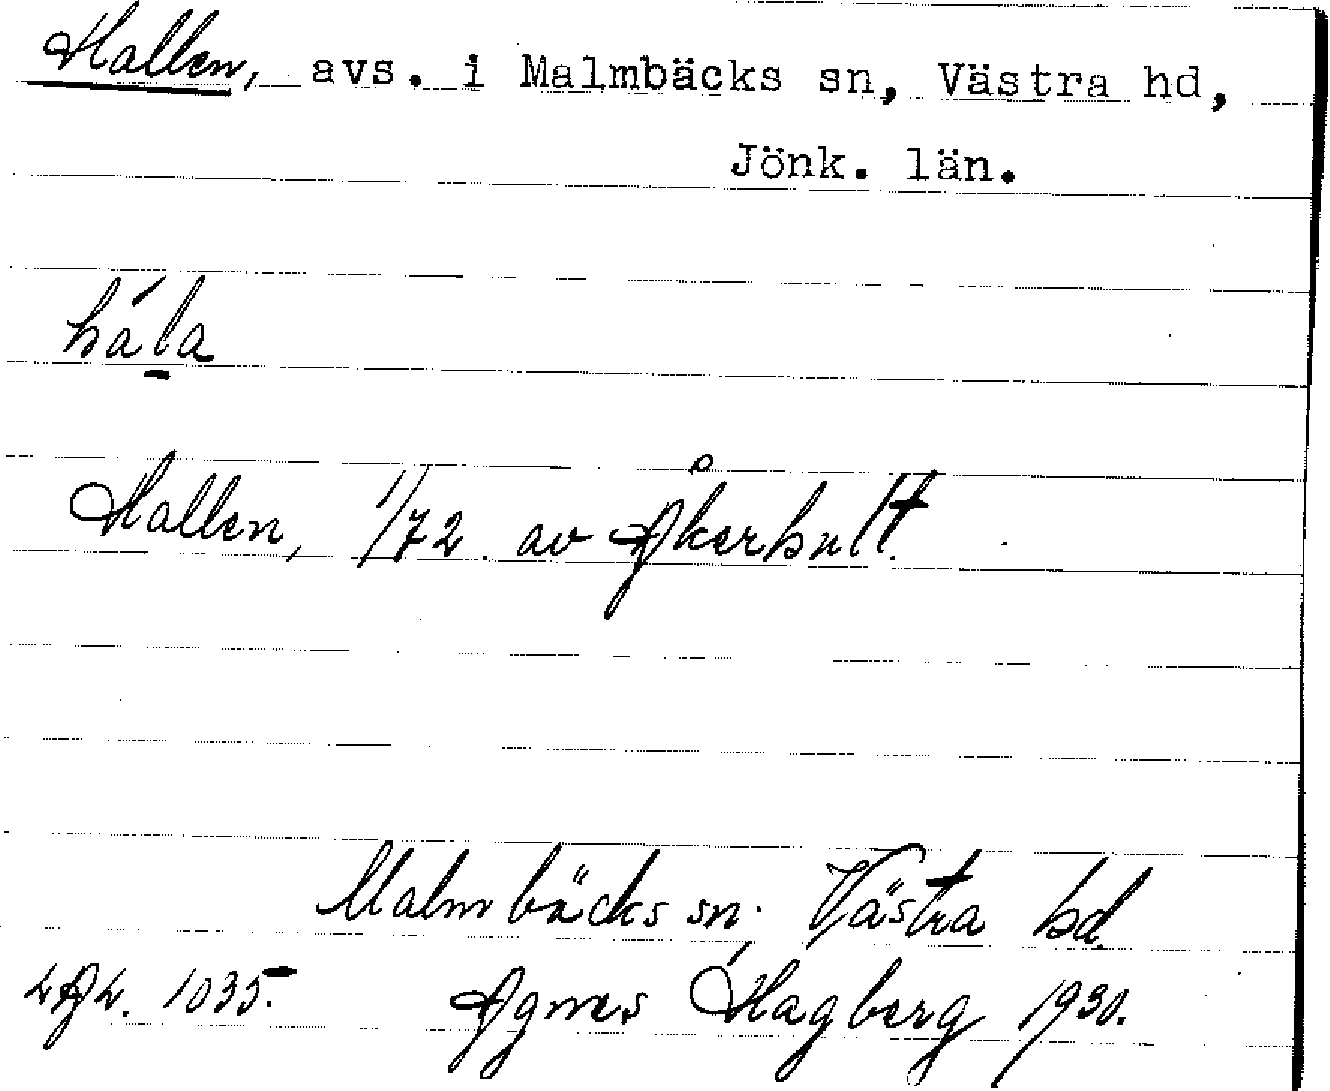 Hallen, avs. i Malmbäcks sn, Västra hd,
Jönk. län.
hála
Hallen, 1/72 av Åkerhult.
Malmbäcks sn. Västra hd.
1035. Agnes Hagberg 1930.